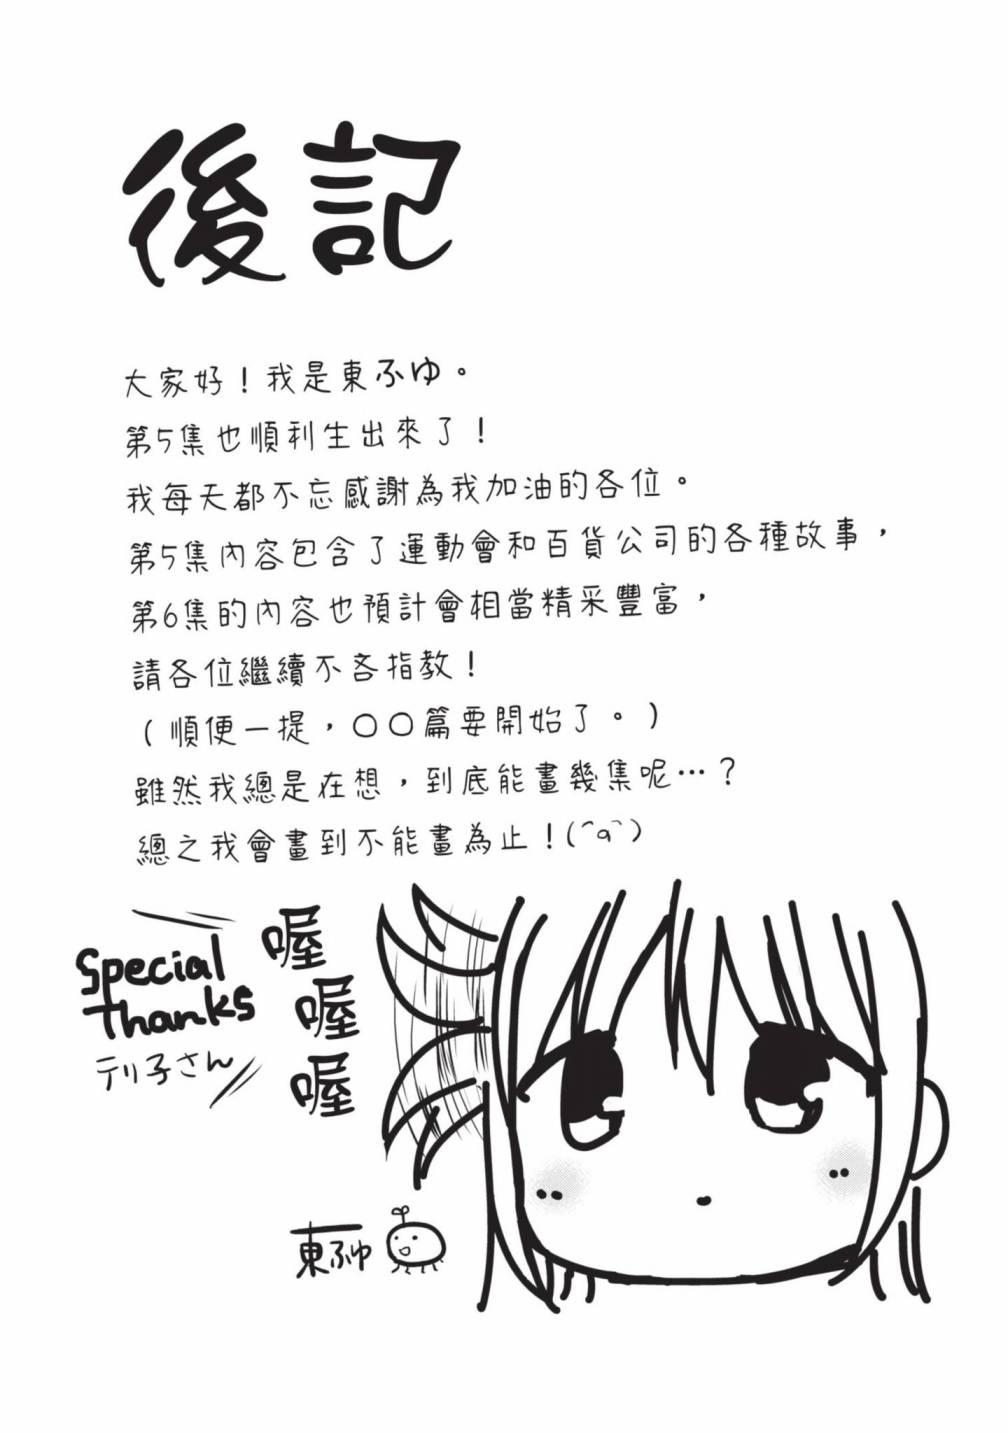 後記
大家好！我是東ふゆ。
第5集也順利生出來了！
我每天都不忘感謝為我加油的各位。
第5集內容包含了運動會和百貨公司的各種故事，
第6集的內容也預計會相當精采豐富，
請各位繼續不吝指教！
（順便一提，〇〇篇要開始了。）
雖然我總是在想，到底能畫幾集呢…？
總之我會畫到不能畫為止！(^q^)
Special
Thanks
テリ子さん
喔
喔
喔
東ふゆ